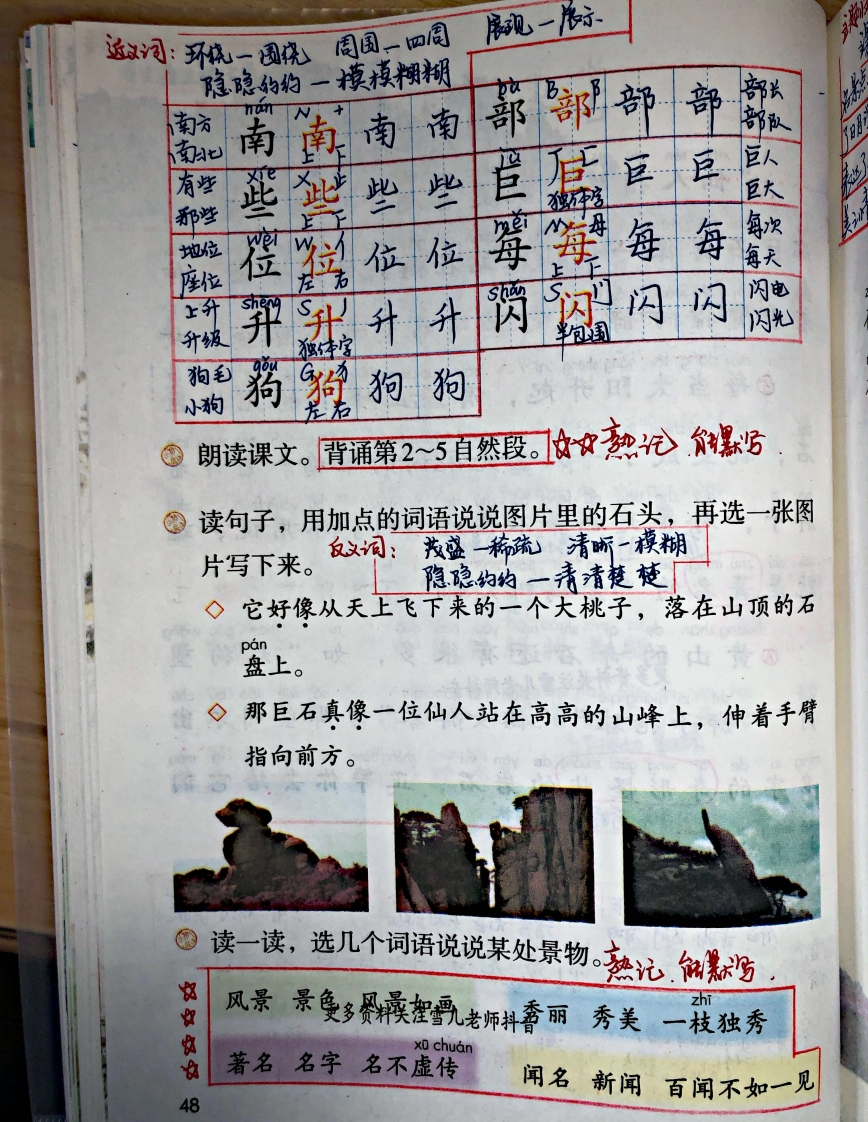 近义词：环绕—围绕 周围—四周 展现—展示
隐隐约约—模模糊糊
南方 南北 nán 南 N 南 十 上下 南 南
有些 那些 xiē 些 X 些 止 上下 些 些
地位 座位 wèi 位 W 位 亻 左右 位 位
上升 升级 shēng 升 S 升 丿 独体字 升 升
狗毛 小狗 gǒu 狗 G 狗 犭 左右 狗 狗
bù 部 B 部 阝 部 部 部长 部队
jù 巨 J 巨 匚 独体字 巨 巨 巨人 巨大
měi 每 M 每 母 上下 每 每 每次 每天
shǎn 闪 S 闪 门 半包围 闪 闪 闪电 闪光
朗读课文。背诵第2~5自然段。☆☆熟记 能默写.
读句子，用加点的词语说说图片里的石头，再选一张图
片写下来。
反义词：茂盛—稀疏 清晰—模糊
隐隐约约—清清楚楚
◇ 它好像从天上飞下来的一个大桃子，落在山顶的石
pán
盘上。
◇ 那巨石真像一位仙人站在高高的山峰上，伸着手臂
指向前方。
读一读，选几个词语说说某处景物。熟记 能默写.
风景 景色 风景如画
更多资料关注雪儿老师抖音
zhī
秀丽 秀美 一枝独秀
xū chuán
著名 名字 名不虚传
闻名 新闻 百闻不如一见
48